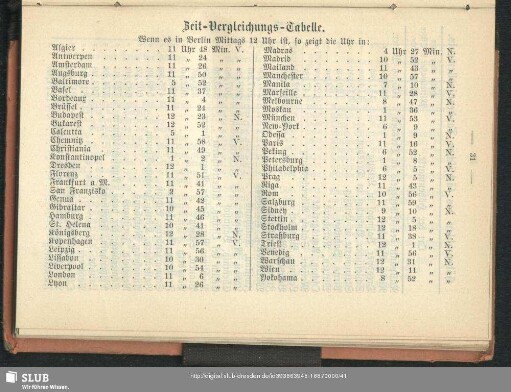 Zeit-Vergleichungs-Tabelle.
Wenn es in Berlin Mittags 12 Uhr ist, so zeigt die Uhr in:
Algier 11 Uhr 48 Min. V.
Antwerpen 11 „ 24 „ „
Amsterdam 11 „ 26 „ „
Augsburg 11 „ 50 „ „
Baltimore 5 „ 52 „ „
Basel 11 „ 37 „ „
Bordeaux 11 „ 4 „ „
Brüssel 11 „ 24 „ „
Budapest 12 „ 23 „ N.
Bukarest 12 „ 52 „ „
Calcutta 5 „ 1 „ „
Chemnitz 11 „ 58 „ V.
Christiania 11 „ 49 „ „
Konstantinopel 1 „ 2 „ N.
Dresden 12 „ 1 „ „
Florenz 11 „ 51 „ V.
Frankfurt a M. 11 „ 41 „ „
San Franzisko 2 „ 57 „ „
Genua 11 „ 42 „ „
Gibraltar 10 „ 45 „ „
Hamburg 11 „ 46 „ „
St. Helena 10 „ 41 „ „
Königsberg 12 „ 28 „ N.
Kopenhagen 11 „ 57 „ V.
Leipzig 11 „ 56 „ „
Lissabon 10 „ 30 „ „
Liverpool 10 „ 54 „ „
London 11 „ 6 „ „
Lyon 11 „ 26 „ „
Madras 4 Uhr 27 Min. N.
Madrid 10 „ 52 „ V.
Mailand 11 „ 43 „ „
Manchester 10 „ 57 „ „
Manila 7 „ 10 „ N.
Marseille 11 „ 28 „ V.
Melbourne 8 „ 47 „ N.
Moskau 1 „ 36 „ „
München 11 „ 53 „ V.
New-York 6 „ 9 „ „
Odessa 1 „ 9 „ N.
Paris 11 „ 16 „ V.
Peking 6 „ 52 „ N.
Petersburg 1 „ 8 „ „
Philadelphia 6 „ 5 „ V.
Prag 12 „ 5 „ N.
Riga 11 „ 43 „ „
Rom 10 „ 56 „ V.
Salzburg 11 „ 59 „ „
Sidney 9 „ 10 „ N.
Stettin 12 „ 5 „ „
Stockholm 12 „ 18 „ „
Straßburg 11 „ 38 „ V.
Triest 12 „ 1 „ N.
Venedig 11 „ 56 „ V.
Warschau 12 „ 31 „ N.
Wien 12 „ 11 „ „
Yokohama 8 „ 52 „ „
— 31 —
SLUB
Wir führen Wissen.